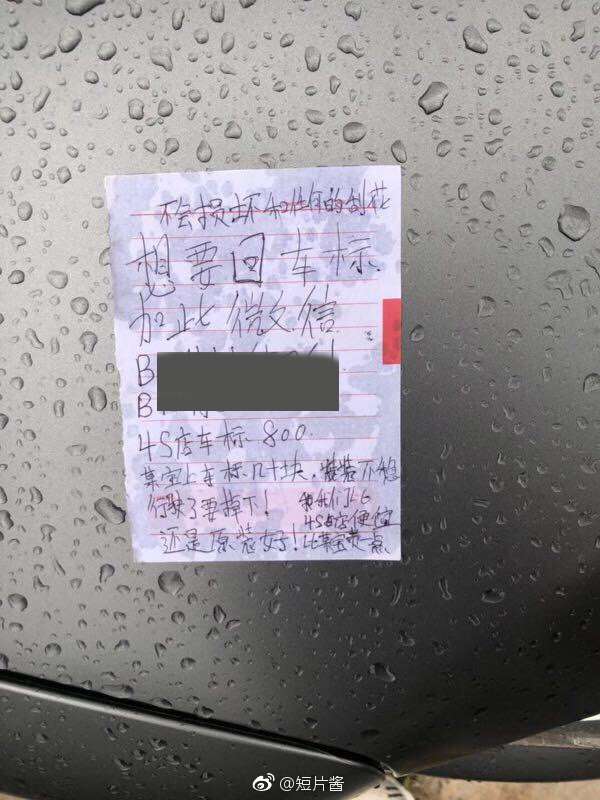 不会损坏和任何的刮花
想要回车标
加此微信
B
B
4S店车标 800.
某宝上车标几十块,不够
行驶了要掉下!
还是原装好!
我们比
4S店便宜
比某宝贵点
@短片酱